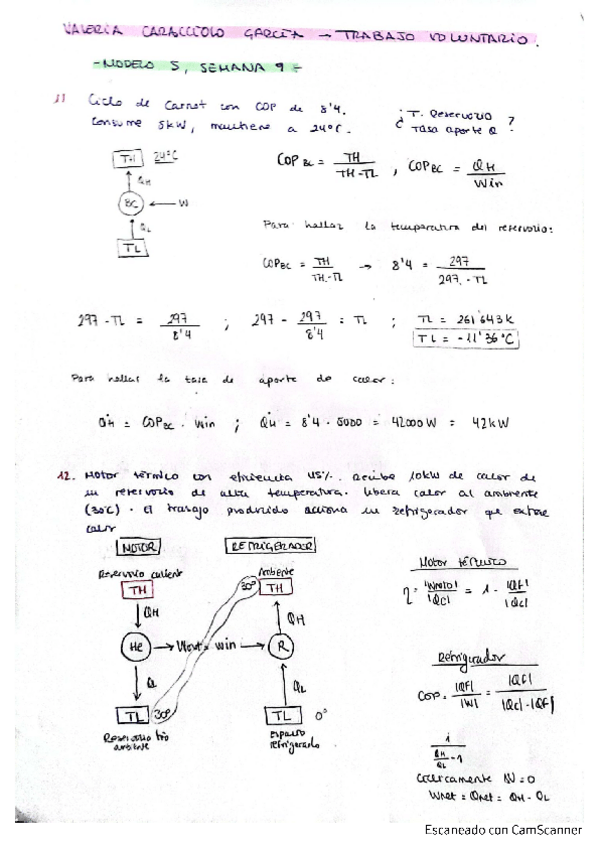 VALERIA CARACCIOLO GARCÍA → TRABAJO VOLUNTARIO.
- MODELO 5, SEMANA 9 -
11 Ciclo de Carnot con COP de 8'4.
Consume 5kW, mantiene a 24°C.
¿ T. Reservorio
Tasa aporte Q ?
TH 24°C
QH
BC ← W
QL
TL
COP BC = TH / TH-TL , COP BC = QH / Win
Para hallar la temperatura del reservorio:
COPBC = TH / TH-TL → 8'4 = 297 / 297 - TL
297 - TL = 297 / 8'4 ; 297 - 297 / 8'4 = TL ; TL = 261'643K
TL = -11'36°C
Para hallar la tasa de aporte de calor:
QH = COPBC · Win ; QH = 8'4 · 5000 = 42000W = 42kW
12. Motor térmico con eficiencia 45%. recibe 10kW de calor de
un reservorio de alta temperatura. libera calor al ambiente
(30°C). El trabajo producido acciona un refrigerador que extrae
calor
MOTOR
REFRIGERADOR
Reservorio caliente
Ambiente
TH
30° TH
QH
QH
He → Wout = win → R
QL
QL
TL 30°
TL 0°
Reservorio frío
ambiente
Espacio
refrigerado
Motor térmico
η = |Wneto| / |QC| = 1 - |QF| / |QC|
Refrigerador
COP = |QF| / |W| = |QF| / |QC|-|QF|
1 / QH/QL - 1
W=0
Wnet = Qnet = QH - QL
Escaneado con CamScanner